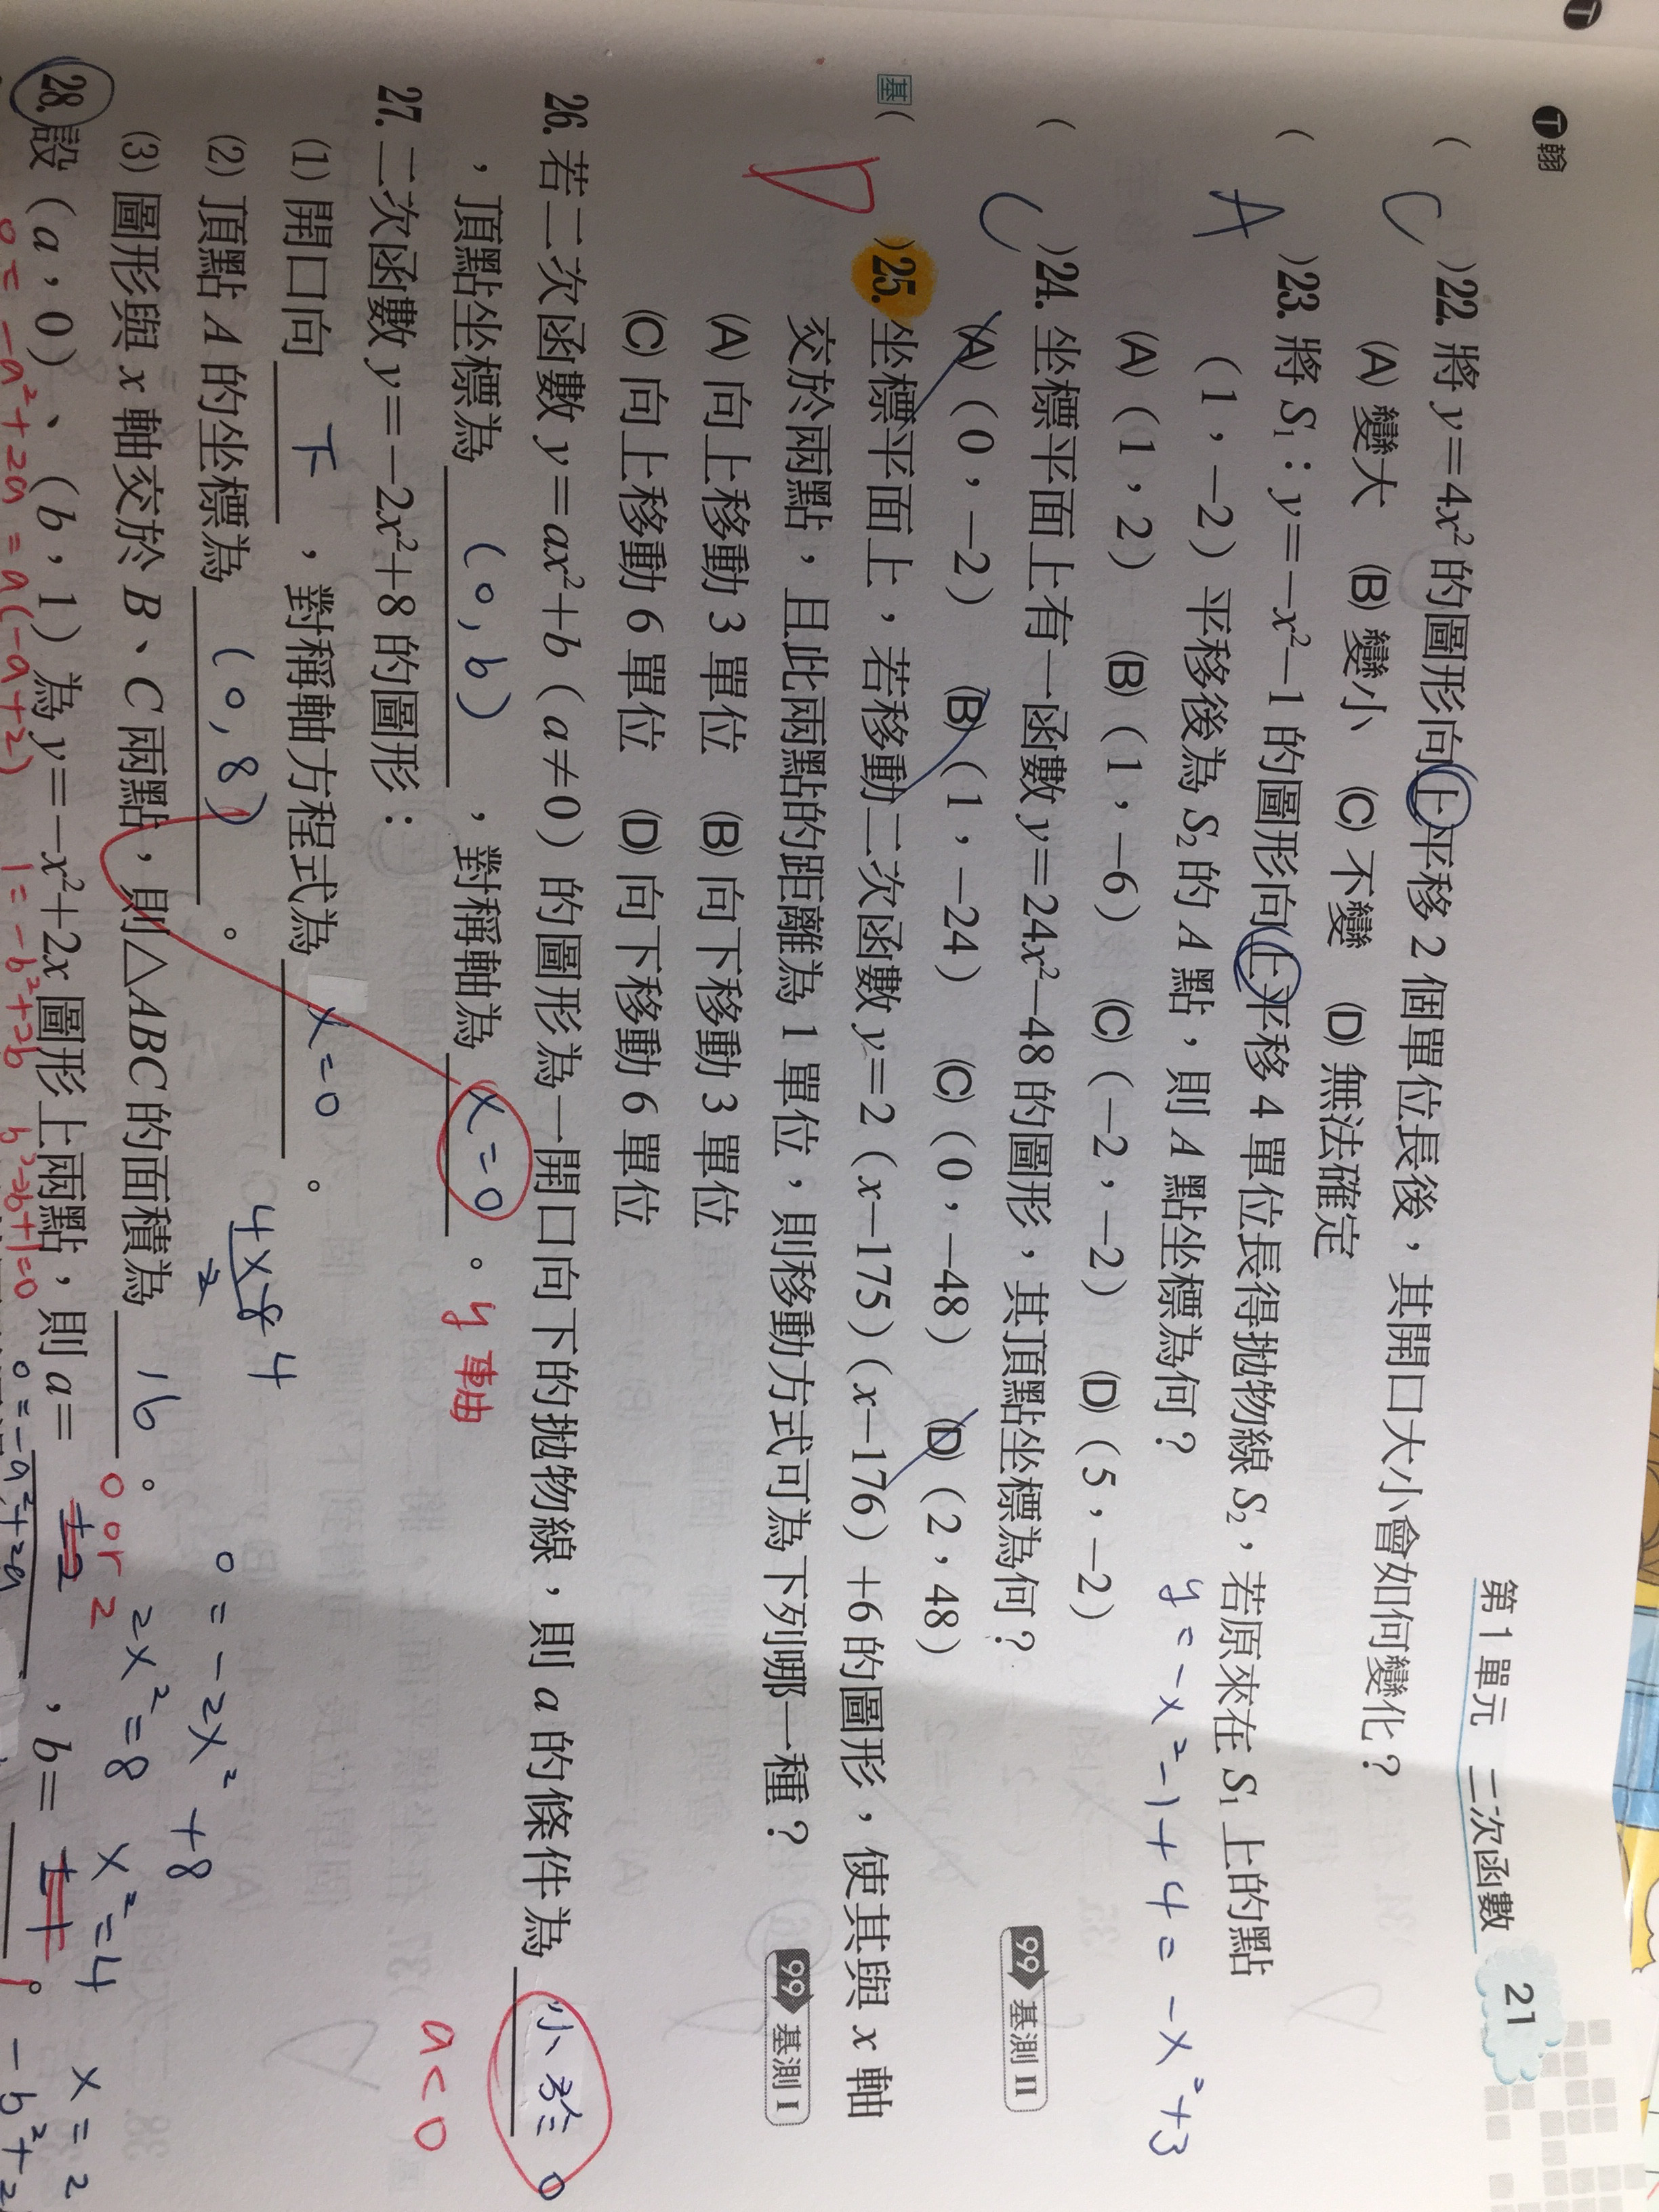 翰
第1單元 二次函數 21
( C )22. 將 y=4x²的圖形向上平移 2 個單位長後，其開口大小會如何變化？
(A) 變大 (B) 變小 (C) 不變 (D) 無法確定
( A )23. 將 S₁：y=－x²－1 的圖形向上平移 4 單位長得拋物線 S₂，若原來在 S₁ 上的點
(1，－2) 平移後為 S₂的 A 點，則 A 點坐標為何？ y=-x²-1+4=-x²+3
(A) (1，2) (B) (1，－6) (C) (－2，－2) (D) (5，－2)
( C )24. 坐標平面上有一函數 y=24x²－48 的圖形，其頂點坐標為何？ 99 基測 II
(A) (0，－2) (B) (1，－24) (C) (0，－48) (D) (2，48)
基( D )25. 坐標平面上，若移動二次函數 y=2 (x－175) (x－176) +6 的圖形，使其與 x 軸
交於兩點，且此兩點的距離為 1 單位，則移動方式可為下列哪一種？ 99 基測 I
(A) 向上移動 3 單位 (B) 向下移動 3 單位
(C) 向上移動 6 單位 (D) 向下移動 6 單位
26. 若二次函數 y=ax²+b (a≠0) 的圖形為一開口向下的拋物線，則 a 的條件為 小於 0
，頂點坐標為 (0,b) ，對稱軸為 x=0 。 y 軸 a<0
27. 二次函數 y=－2x²+8 的圖形：
(1) 開口向 下 ，對稱軸方程式為 x=0 。
(2) 頂點 A 的坐標為 (0,8) 。
0=-2x²+8
(3) 圖形與 x 軸交於 B、C 兩點，則△ABC 的面積為 16 。
2x²=8 x²=4 x=2
28. 設 (a，0)、(b，1) 為 y=－x²+2x 圖形上兩點，則 a= 0 or 2 ，b= 1 。
0=-a²+2a=a(-a+2) 1=-b²+2b b²-2b+1=0 0=-a²+2a